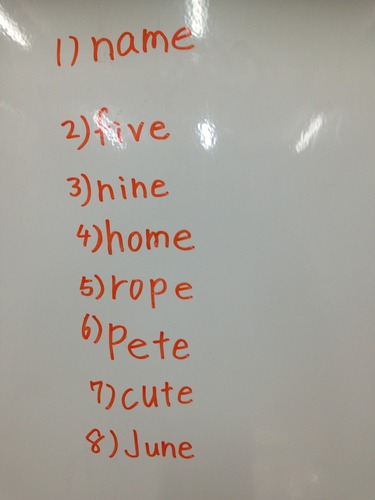 1) name
2) five
3) nine
4) home
5) rope
6) Pete
7) cute
8) June